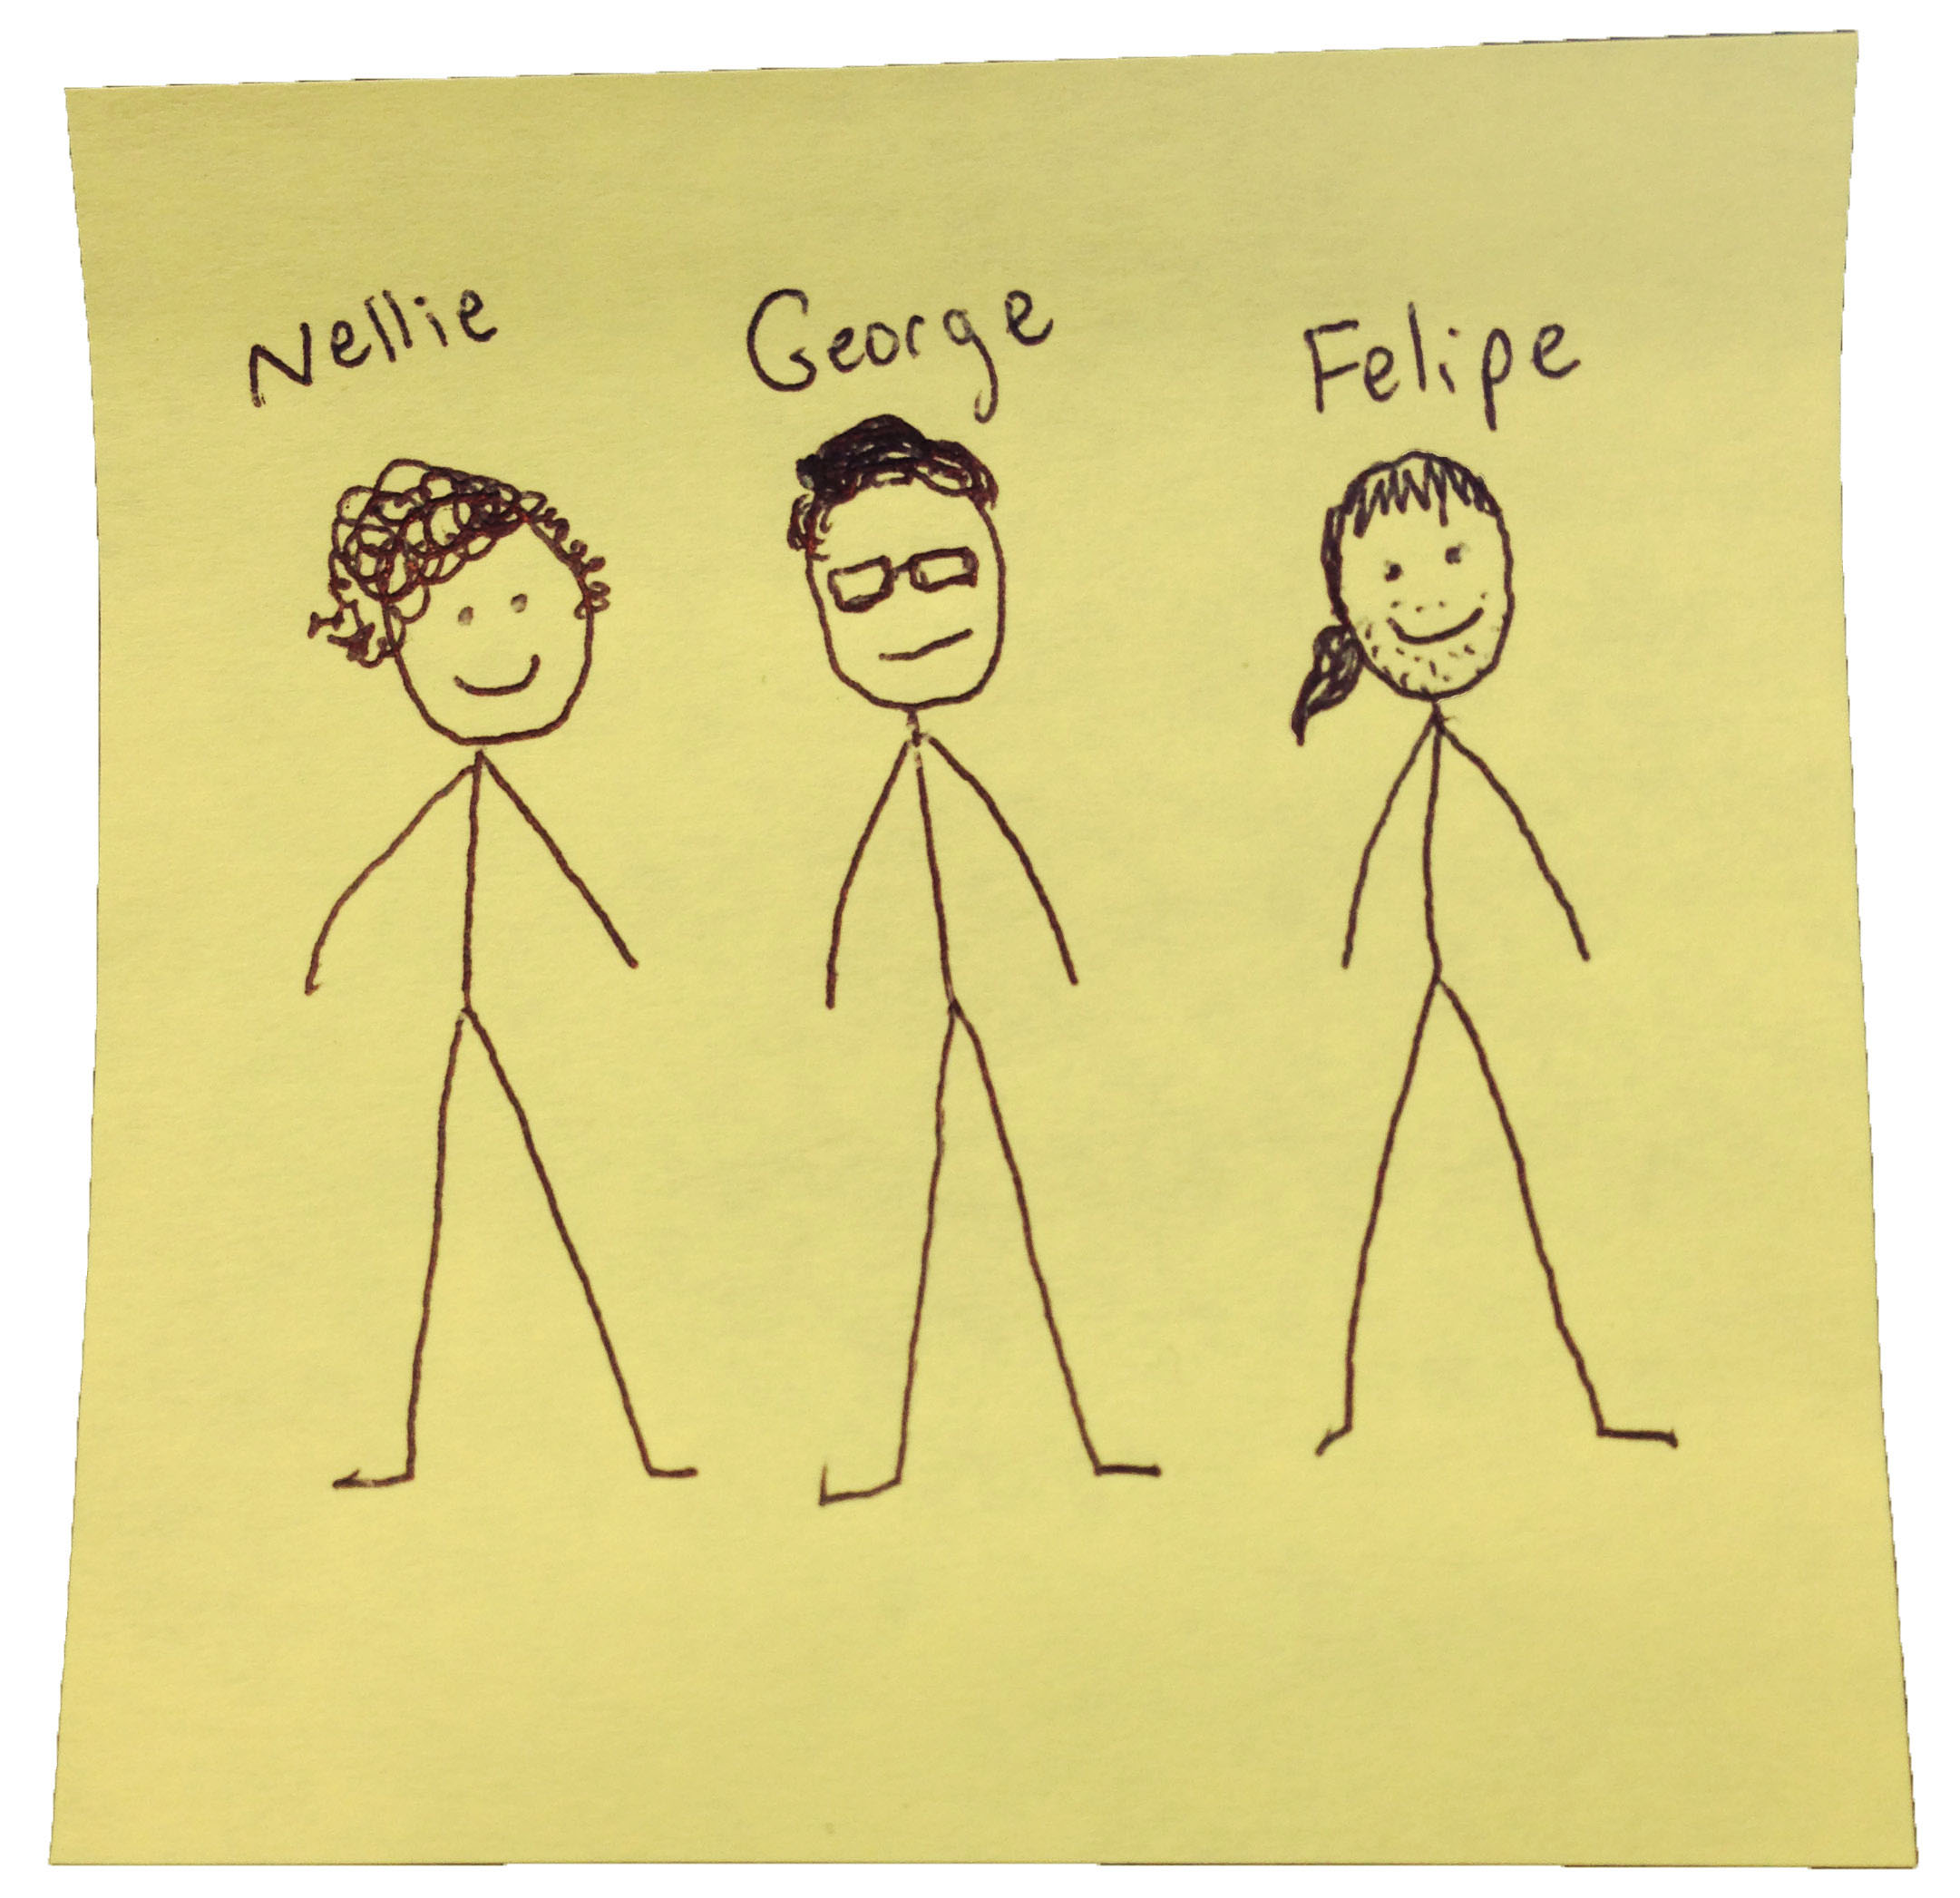 Nellie George Felipe